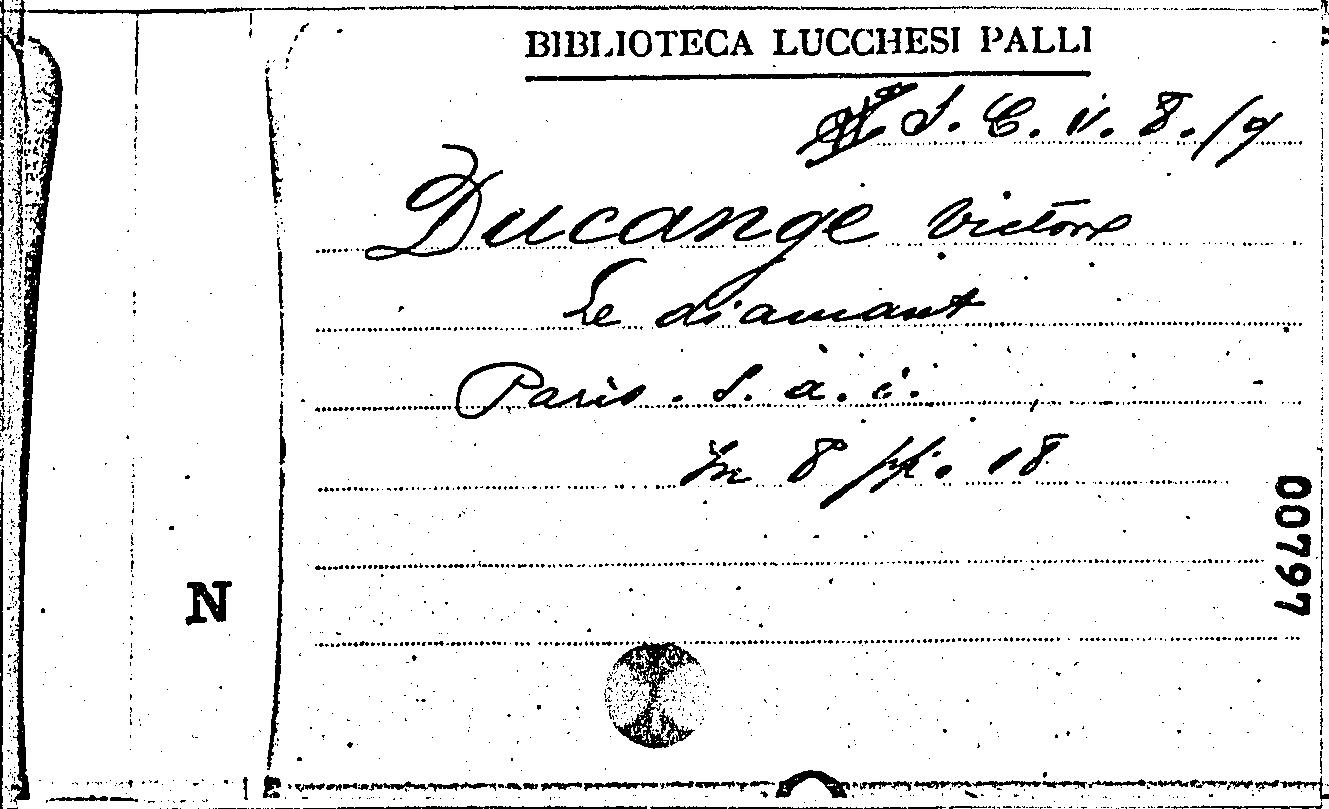 BIBLIOTECA LUCCHESI PALLI
S. C. V. 8. /9
Ducange Victore
Le diamant
Paris. S. a. i.
In 8 pp. 18
00797
N